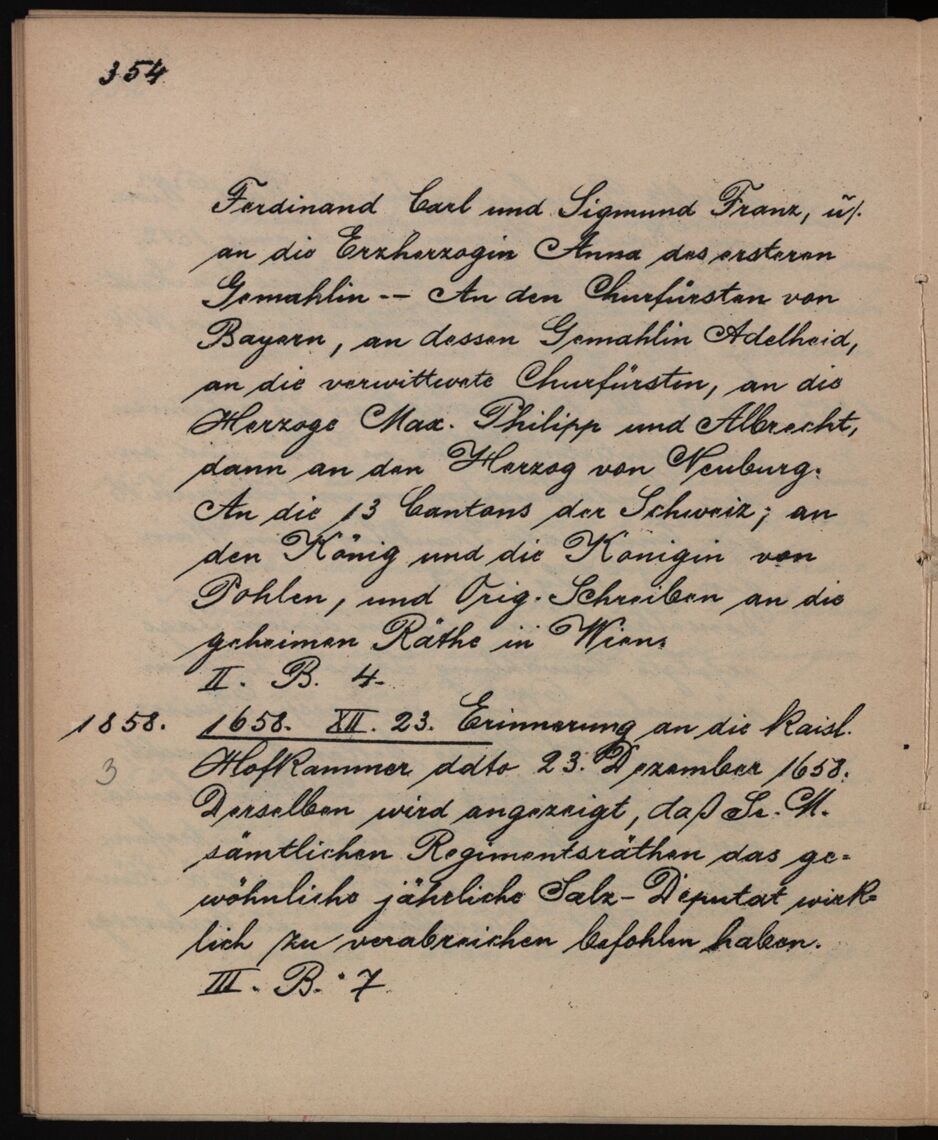 354
Ferdinand Carl und Sigmund Franz, ũ/.
an die Erzherzogin Anna des ersteren
Gemahlin -- An den Churfürsten von
Bayern, an dessen Gemahlin Adelheid,
an die verwittwete Churfürstin, an die
Herzoge Max. Philipp und Albrecht,
dann an den Herzog von Neuburg.
An die 13 Cantons der Schweiz; an
den König und die Königin von
Pohlen, und Orig. Schreiben an die
geheimen Räthe in Wien.
II. B. 4.
1858. 1658. XII. 23. Erinnerung an die Kaisl.
3 Hofkammer ddto 23. Dezember 1658.
Derselben wird angezeigt, daß Se. M.
sämtlichen Regimentsräthen das ge=
wöhnliche jährliche Salz-Deputat wirk=
lich zu verabreichen befohlen haben.
III. B. 7